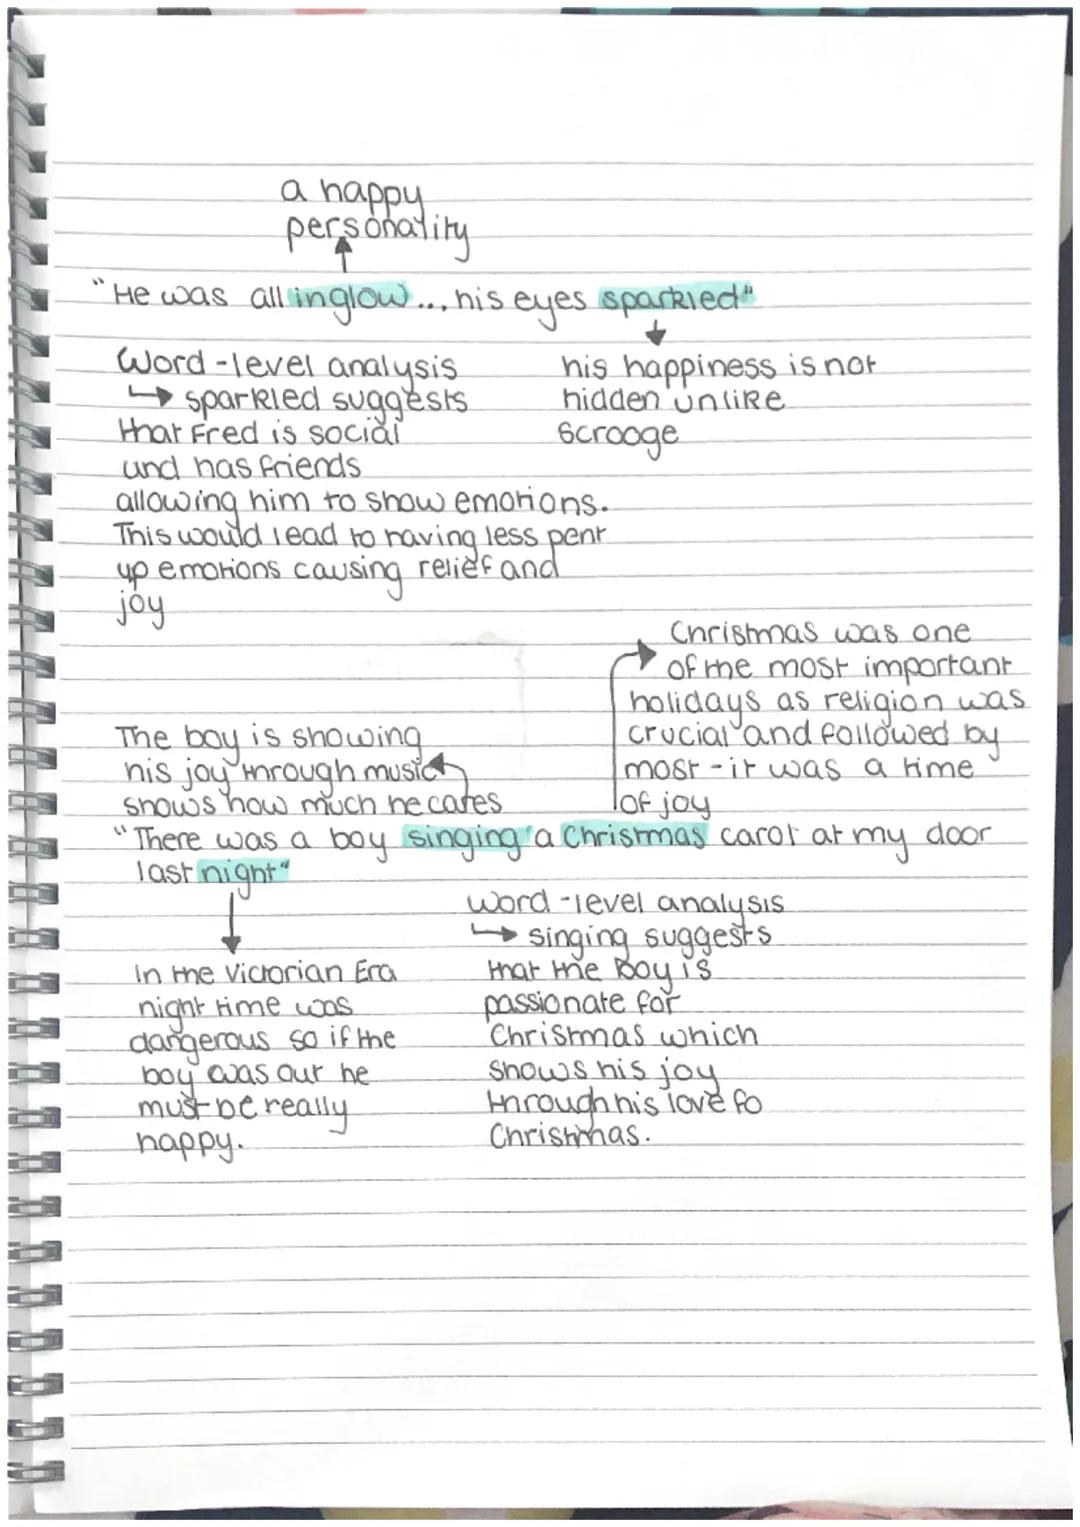 a happy
personality
"He was all inglow... his eyes sparkled"
Word-level analysis
↳ sparkled suggests
that Fred is social
and has friends
allowing him to show emotions.
This would lead to having less pent
up emotions causing relief and
joy
his happiness is not
hidden unlike
Scrooge
Christmas was one
of the most important
holidays as religion was
crucial and followed by
most - it was a time
of joy
The boy is showing
his joy through music
shows how much he cares
"There was a boy singing a Christmas carol at my door
last night"
In the Victorian Era
night time was
dangerous so if the
boy was out he
must be really
happy.
word-level analysis
↳ singing suggests
that the boy is
passionate for
Christmas which
shows his joy
through his love fo
Christmas.